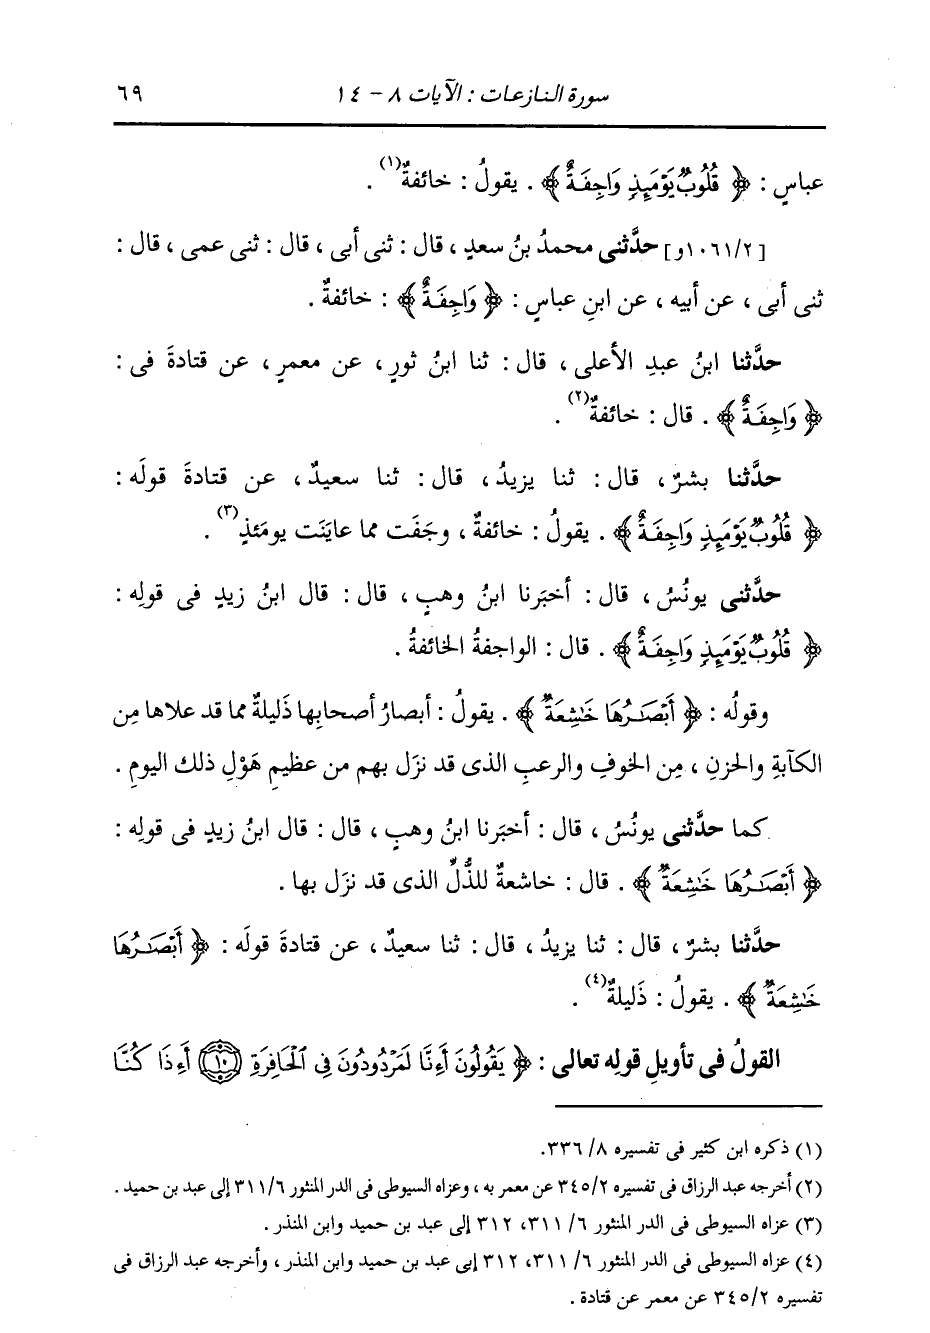 سورة النازعات : الآيات ٨ - ١٤ ٦٩
عباسٍ : ﴿ قُلُوبٌ يَوْمَئِذٍ وَاجِفَةٌ ﴾ . يقولُ : خائفةٌ(١) .
[١٠٦١/٢و] حدَّثنى محمدُ بنُ سعدٍ ، قال : ثنى أبى ، قال : ثنى عمى ، قال :
ثنى أبى ، عن أبيه ، عن ابنِ عباسٍ : ﴿ وَاجِفَةٌ ﴾ : خائفةٌ .
حدَّثنا ابنُ عبدِ الأعلى ، قال : ثنا ابنُ ثورٍ ، عن معمرٍ ، عن قتادةَ فى :
﴿ وَاجِفَةٌ ﴾ . قال : خائفةٌ(٢) .
حدَّثنا بشرٌ ، قال : ثنا يزيدُ ، قال : ثنا سعيدٌ ، عن قتادةَ قولَه :
﴿ قُلُوبٌ يَوْمَئِذٍ وَاجِفَةٌ ﴾ . يقولُ : خائفةٌ ، وجَفَت مما عايَنَت يومَئذٍ(٣) .
حدَّثنى يونُسُ ، قال : أخبَرنا ابنُ وهبٍ ، قال : قال ابنُ زيدٍ فى قولِه :
﴿ قُلُوبٌ يَوْمَئِذٍ وَاجِفَةٌ ﴾ . قال : الواجفةُ الخائفةُ .
وقولُه : ﴿ أَبْصَـٰرُهَا خَـٰشِعَةٌ ﴾ . يقولُ : أبصارُ أصحابِها ذَليلةٌ مما قد علاها مِن
الكآبةِ والحزنِ ، مِن الخوفِ والرعبِ الذى قد نزَل بهم من عظيمِ هَوْلِ ذلك اليومِ .
كما حدَّثنى يونُسُ ، قال : أخبَرنا ابنُ وهبٍ ، قال : قال ابنُ زيدٍ فى قولِه :
﴿ أَبْصَـٰرُهَا خَـٰشِعَةٌ ﴾ . قال : خاشعةٌ للذُّلِّ الذى قد نزَل بها .
حدَّثنا بشرٌ ، قال : ثنا يزيدُ ، قال : ثنا سعيدٌ ، عن قتادةَ قولَه : ﴿ أَبْصَـٰرُهَا
خَـٰشِعَةٌ ﴾ . يقولُ : ذَليلةٌ(٤) .
القولُ فى تأويلِ قولِه تعالى : ﴿ يَقُولُونَ أَءِنَّا لَمَرْدُودُونَ فِى ٱلْحَافِرَةِ ١٠ أَءِذَا كُنَّا
(١) ذكره ابن كثير فى تفسيره ٨/ ٣٣٦.
(٢) أخرجه عبد الرزاق فى تفسيره ٣٤٥/٢ عن معمر به ، وعزاه السيوطى فى الدر المنثور ٣١١/٦ إلى عبد بن حميد .
(٣) عزاه السيوطى فى الدر المنثور ٦/ ٣١١، ٣١٢ إلى عبد بن حميد وابن المنذر .
(٤) عزاه السيوطى فى الدر المنثور ٦/ ٣١١، ٣١٢ إلى عبد بن حميد وابن المنذر ، وأخرجه عبد الرزاق فى
تفسيره ٣٤٥/٢ عن معمر عن قتادة .